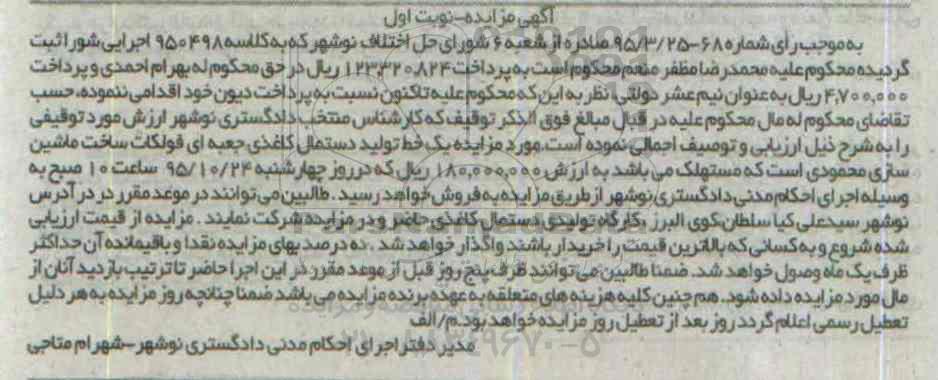 آگهی مزایده-نوبت اول
به موجب رأی شماره ۶۸-۹۵/۳/۲۵ صادره از شعبه ۶ شورای حل اختلاف نوشهر که به کلاسه ۹۵۰۴۹۸ اجرایی شورا ثبت
گردیده محکوم علیه محمدرضا مظفر منعم محکوم است به پرداخت ۱۲۳,۳۲۰,۸۲۴ ریال در حق محکوم له بهرام احمدی و پرداخت
۴,۷۰۰,۰۰۰ ریال به عنوان نیم عشر دولتی، نظر به این که محکوم علیه تاکنون نسبت به پرداخت دیون خود اقدامی ننموده، حسب
تقاضای محکوم له مال محکوم علیه در قبال مبالغ فوق الذکر توقیف که کارشناس منتخب دادگستری نوشهر ارزش مورد توقیفی
را به شرح ذیل ارزیابی و توصیف اجمالی نموده است.مورد مزایده یک خط تولید دستمال کاغذی جعبه ای فولکات ساخت ماشین
سازی محمودی است که مستهلک می باشد به ارزش ۱۸۰,۰۰۰,۰۰۰ ریال که در روز چهارشنبه ۹۵/۱۰/۲۴ ساعت ۱۰ صبح به
وسیله اجرای احکام مدنی دادگستری نوشهر از طریق مزایده به فروش خواهد رسید . طالبین می توانند در موعد مقرر در در آدرس
نوشهر سیدعلی کیا سلطان،کوی البرز ،کارگاه تولیدی دستمال کاغذی حاضر و در مزایده شرکت نمایند . مزایده از قیمت ارزیابی
شده شروع و به کسانی که بالاترین قیمت را خریدار باشند واگذار خواهد شد . ده درصد بهای مزایده نقدا و باقیمانده آن حداکثر
ظرف یک ماه وصول خواهد شد. ضمنا طالبین می توانند ظرف پنج روز قبل از موعد مقرر در این اجرا حاضر تا ترتیب بازدید آنان از
مال مورد مزایده داده شود. هم چنین کلیه هزینه های متعلقه به عهده برنده مزایده می باشد ضمنا چنانچه روز مزایده به هر دلیل
تعطیل رسمی اعلام گردد روز بعد از تعطیل روز مزایده خواهد بود.م/الف
مدیر دفتر اجرای احکام مدنی دادگستری نوشهر-شهرام متاجی